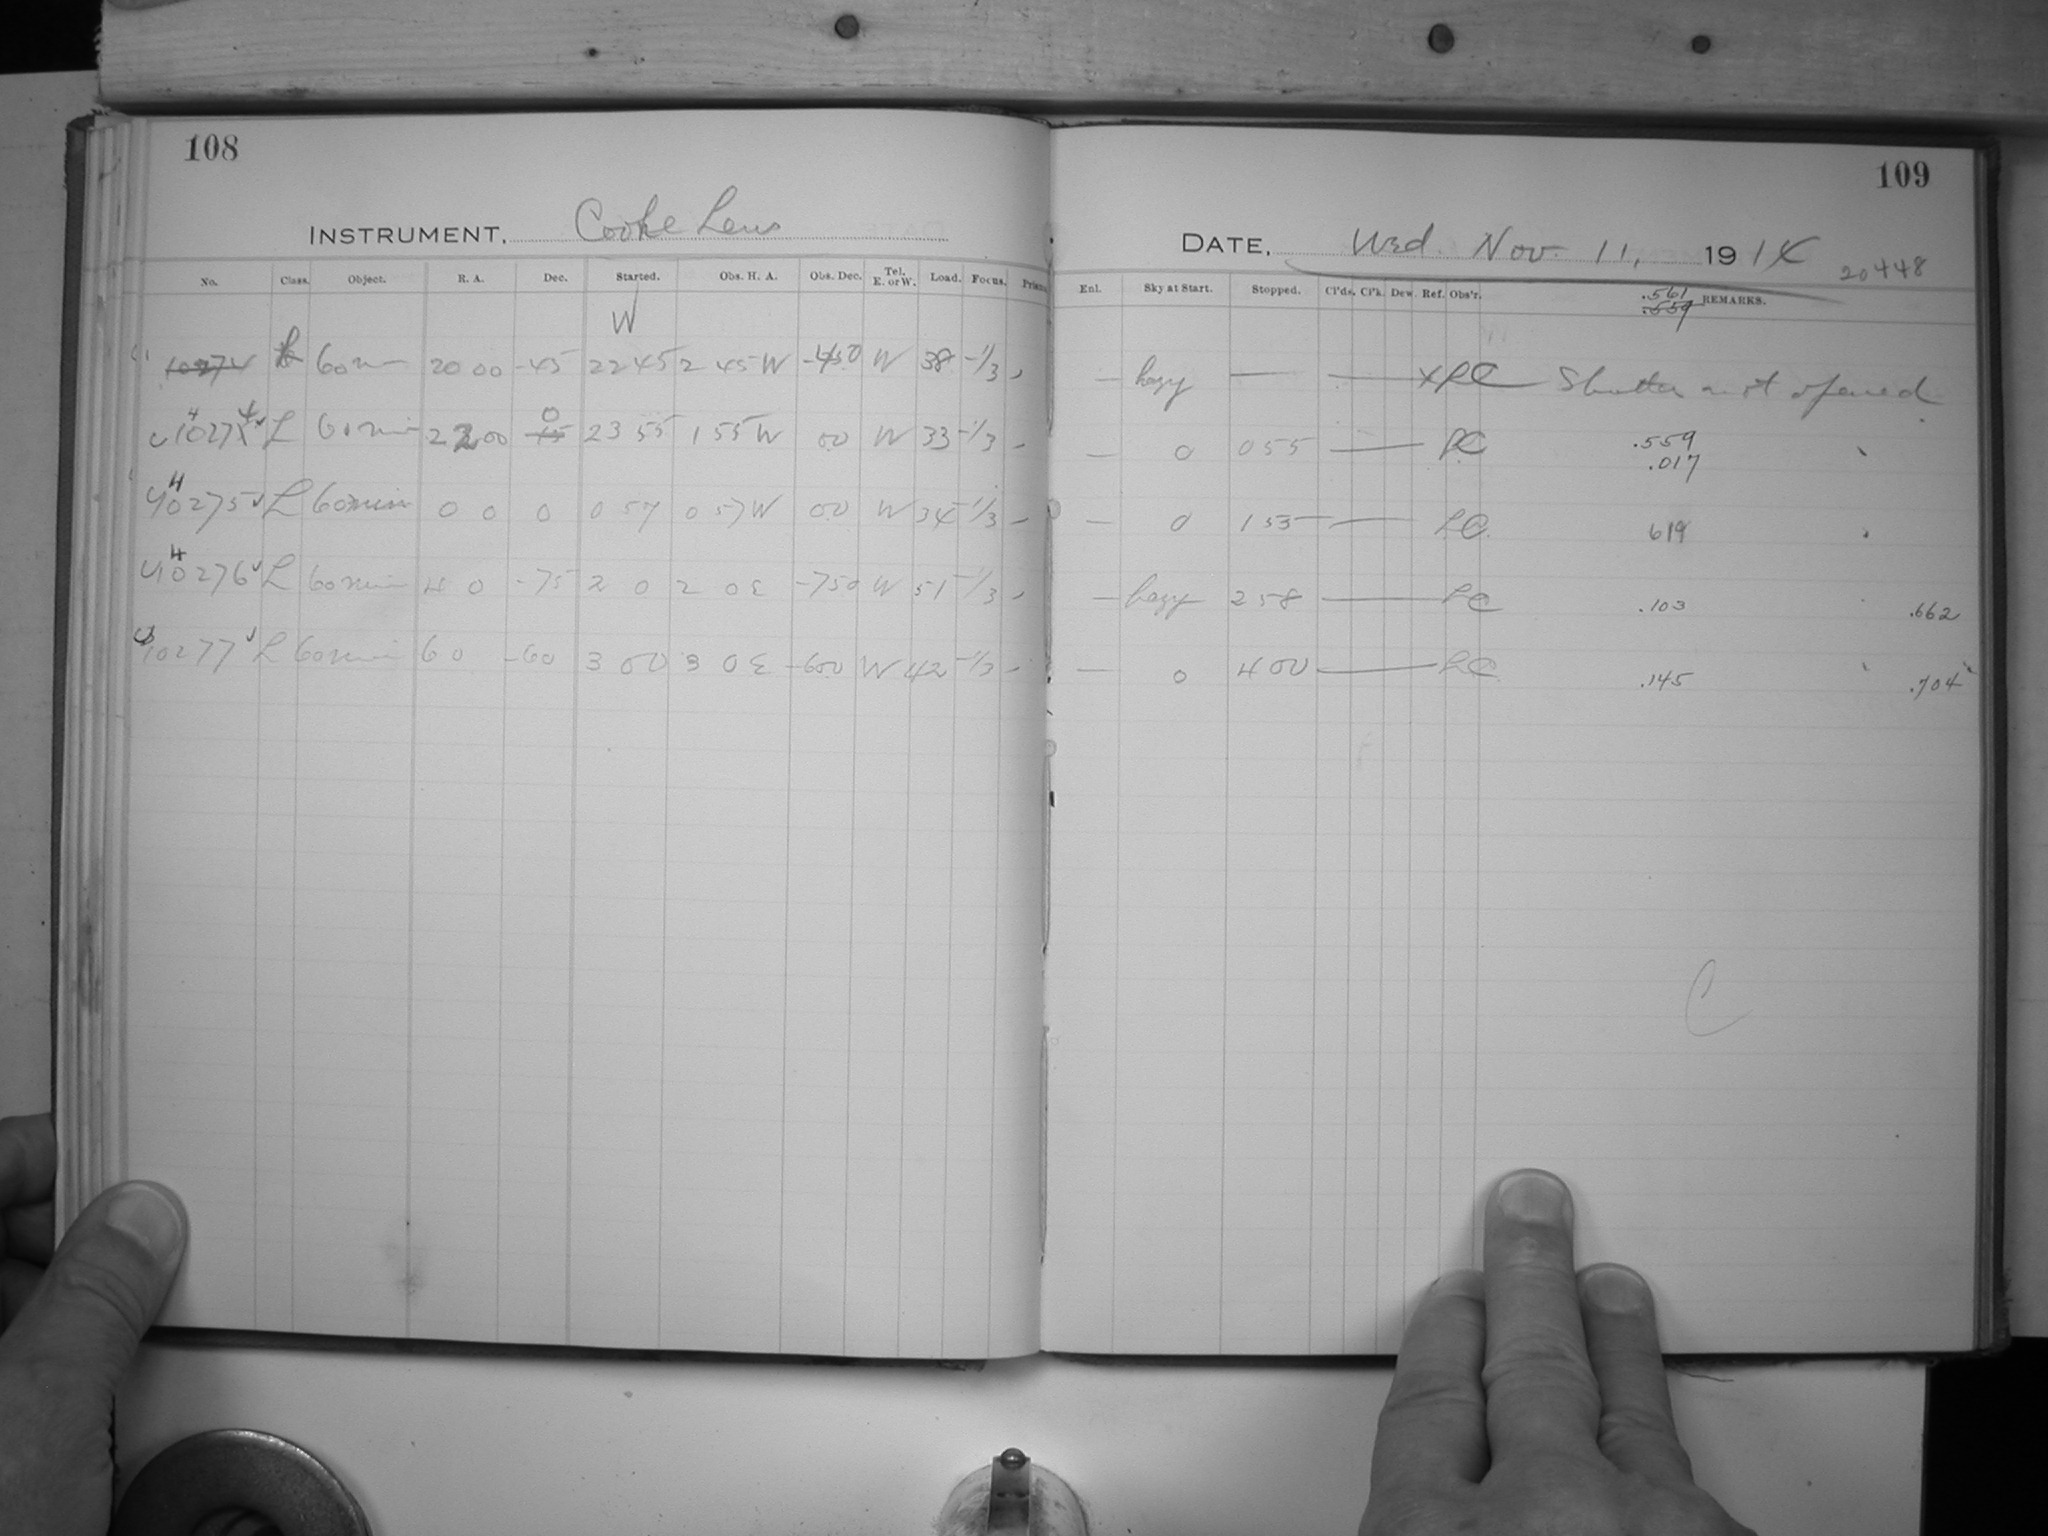 108
INSTRUMENT, Cooke Lens
No. Class. Object. R. A. Dec. Started. Obs. H. A. Obs. Dec. Tel. E. or W. Load. Focus.
W
10274 60 m 20 00 -45 22 45 2 45 W -45 0 W 38 -1/3
10274 L 60 min 22 00 0 23 55 1 55 W 0 0 W 33 -1/3 -
10275 L 60 min 0 0 0 0 57 0 57 W 0 0 W 34 -1/3 -
10276 L 60 min 4 0 -75 2 0 2 0 E -75 0 W 51 -1/3 -
10277 L 60 min 6 0 -60 3 00 3 0 E -60 0 W 42 -1/3 -
109
DATE, Wed. Nov. 11, 1914
20448
Enl. Sky at Start. Stopped. Cl'ds. Cl'k. Dew. Ref. Obs'r. REMARKS.
.561
.559
— hazy — — X LC Shutter not opened
— 0 0 55 — LC .559
.017
— 0 1 53 — LC 619
— hazy 2 58 — LC .103 .662
— 0 4 00 — LC .145 .704
C